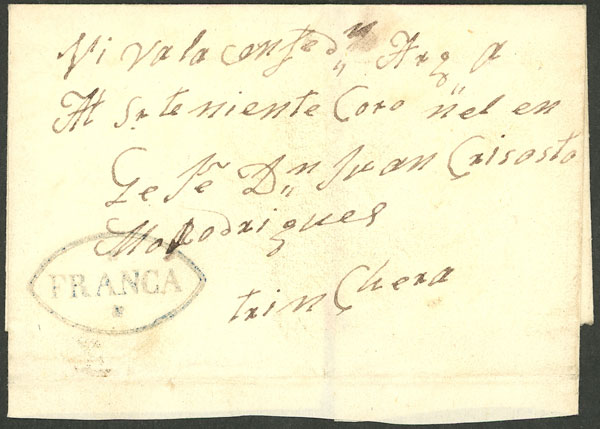 Vi va la Confed„n Arg„a
Al Sr teniente Coro nel en
Gefe Dn„ Juan Crisosto
Mo Rodrigues
FRANCA
trinChera